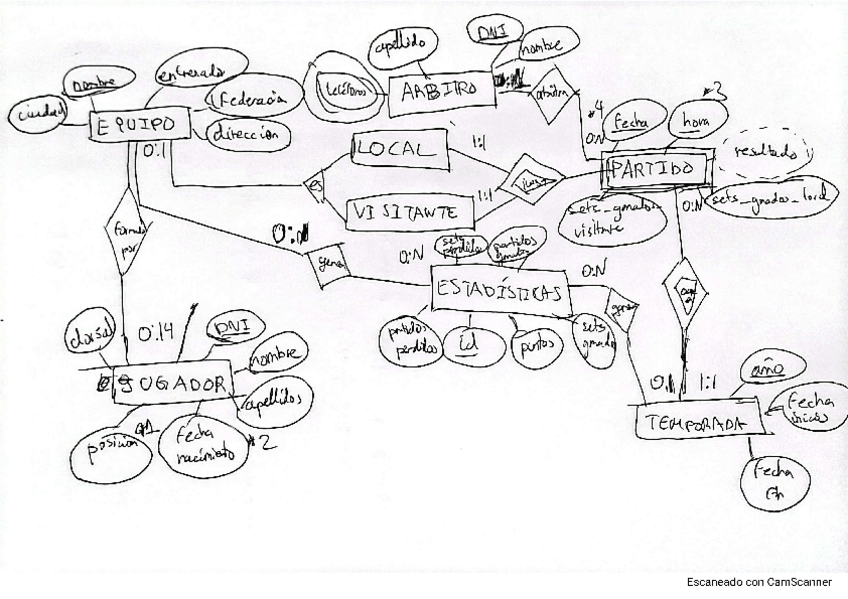 apellido
DNI
nombre
teléfonos
ARBITRO
arbitra
nombre
entrenador
Federación
ciudad
EQUIPO
dirección
0:1
*4
*3
fecha
hora
0:N
LOCAL
1:1
PARTIDO
resultado
es
1:1
VISITANTE
0:N
sets_gnados_local
sets_gnados
visitante
0:N
0:N
sets
perdidos
partidos
gnados
0:N
ESTADÍSTICAS
genera
partidos
perdidos
id
puntos
sets
gnados
formado
por
dorsal
0:14
DNI
nombre
JUGADOR
apellidos
posición
*1
Fecha
nacimiento
*2
1:1
año
TEMPORADA
Fecha
inicio
Fecha
fin
Escaneado con CamScanner